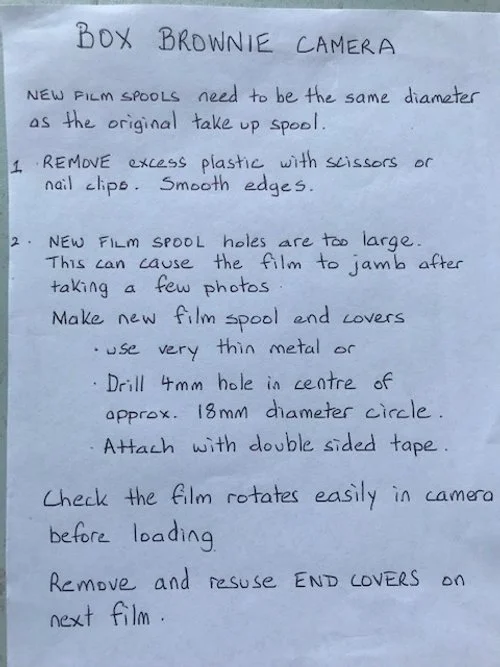 BOX BROWNIE CAMERA
NEW FILM SPOOLS need to be the same diameter
as the original take up spool.
1 . REMOVE excess plastic with scissors or
nail clips. Smooth edges.
2. NEW FILM SPOOL holes are too large.
This can cause the film to jamb after
taking a few photos.
Make new film spool end covers
· use very thin metal or
· Drill 4mm hole in centre of
approx. 18mm diameter circle.
· Attach with double sided tape.
Check the film rotates easily in camera
before loading
Remove and resuse END COVERS on
next film.